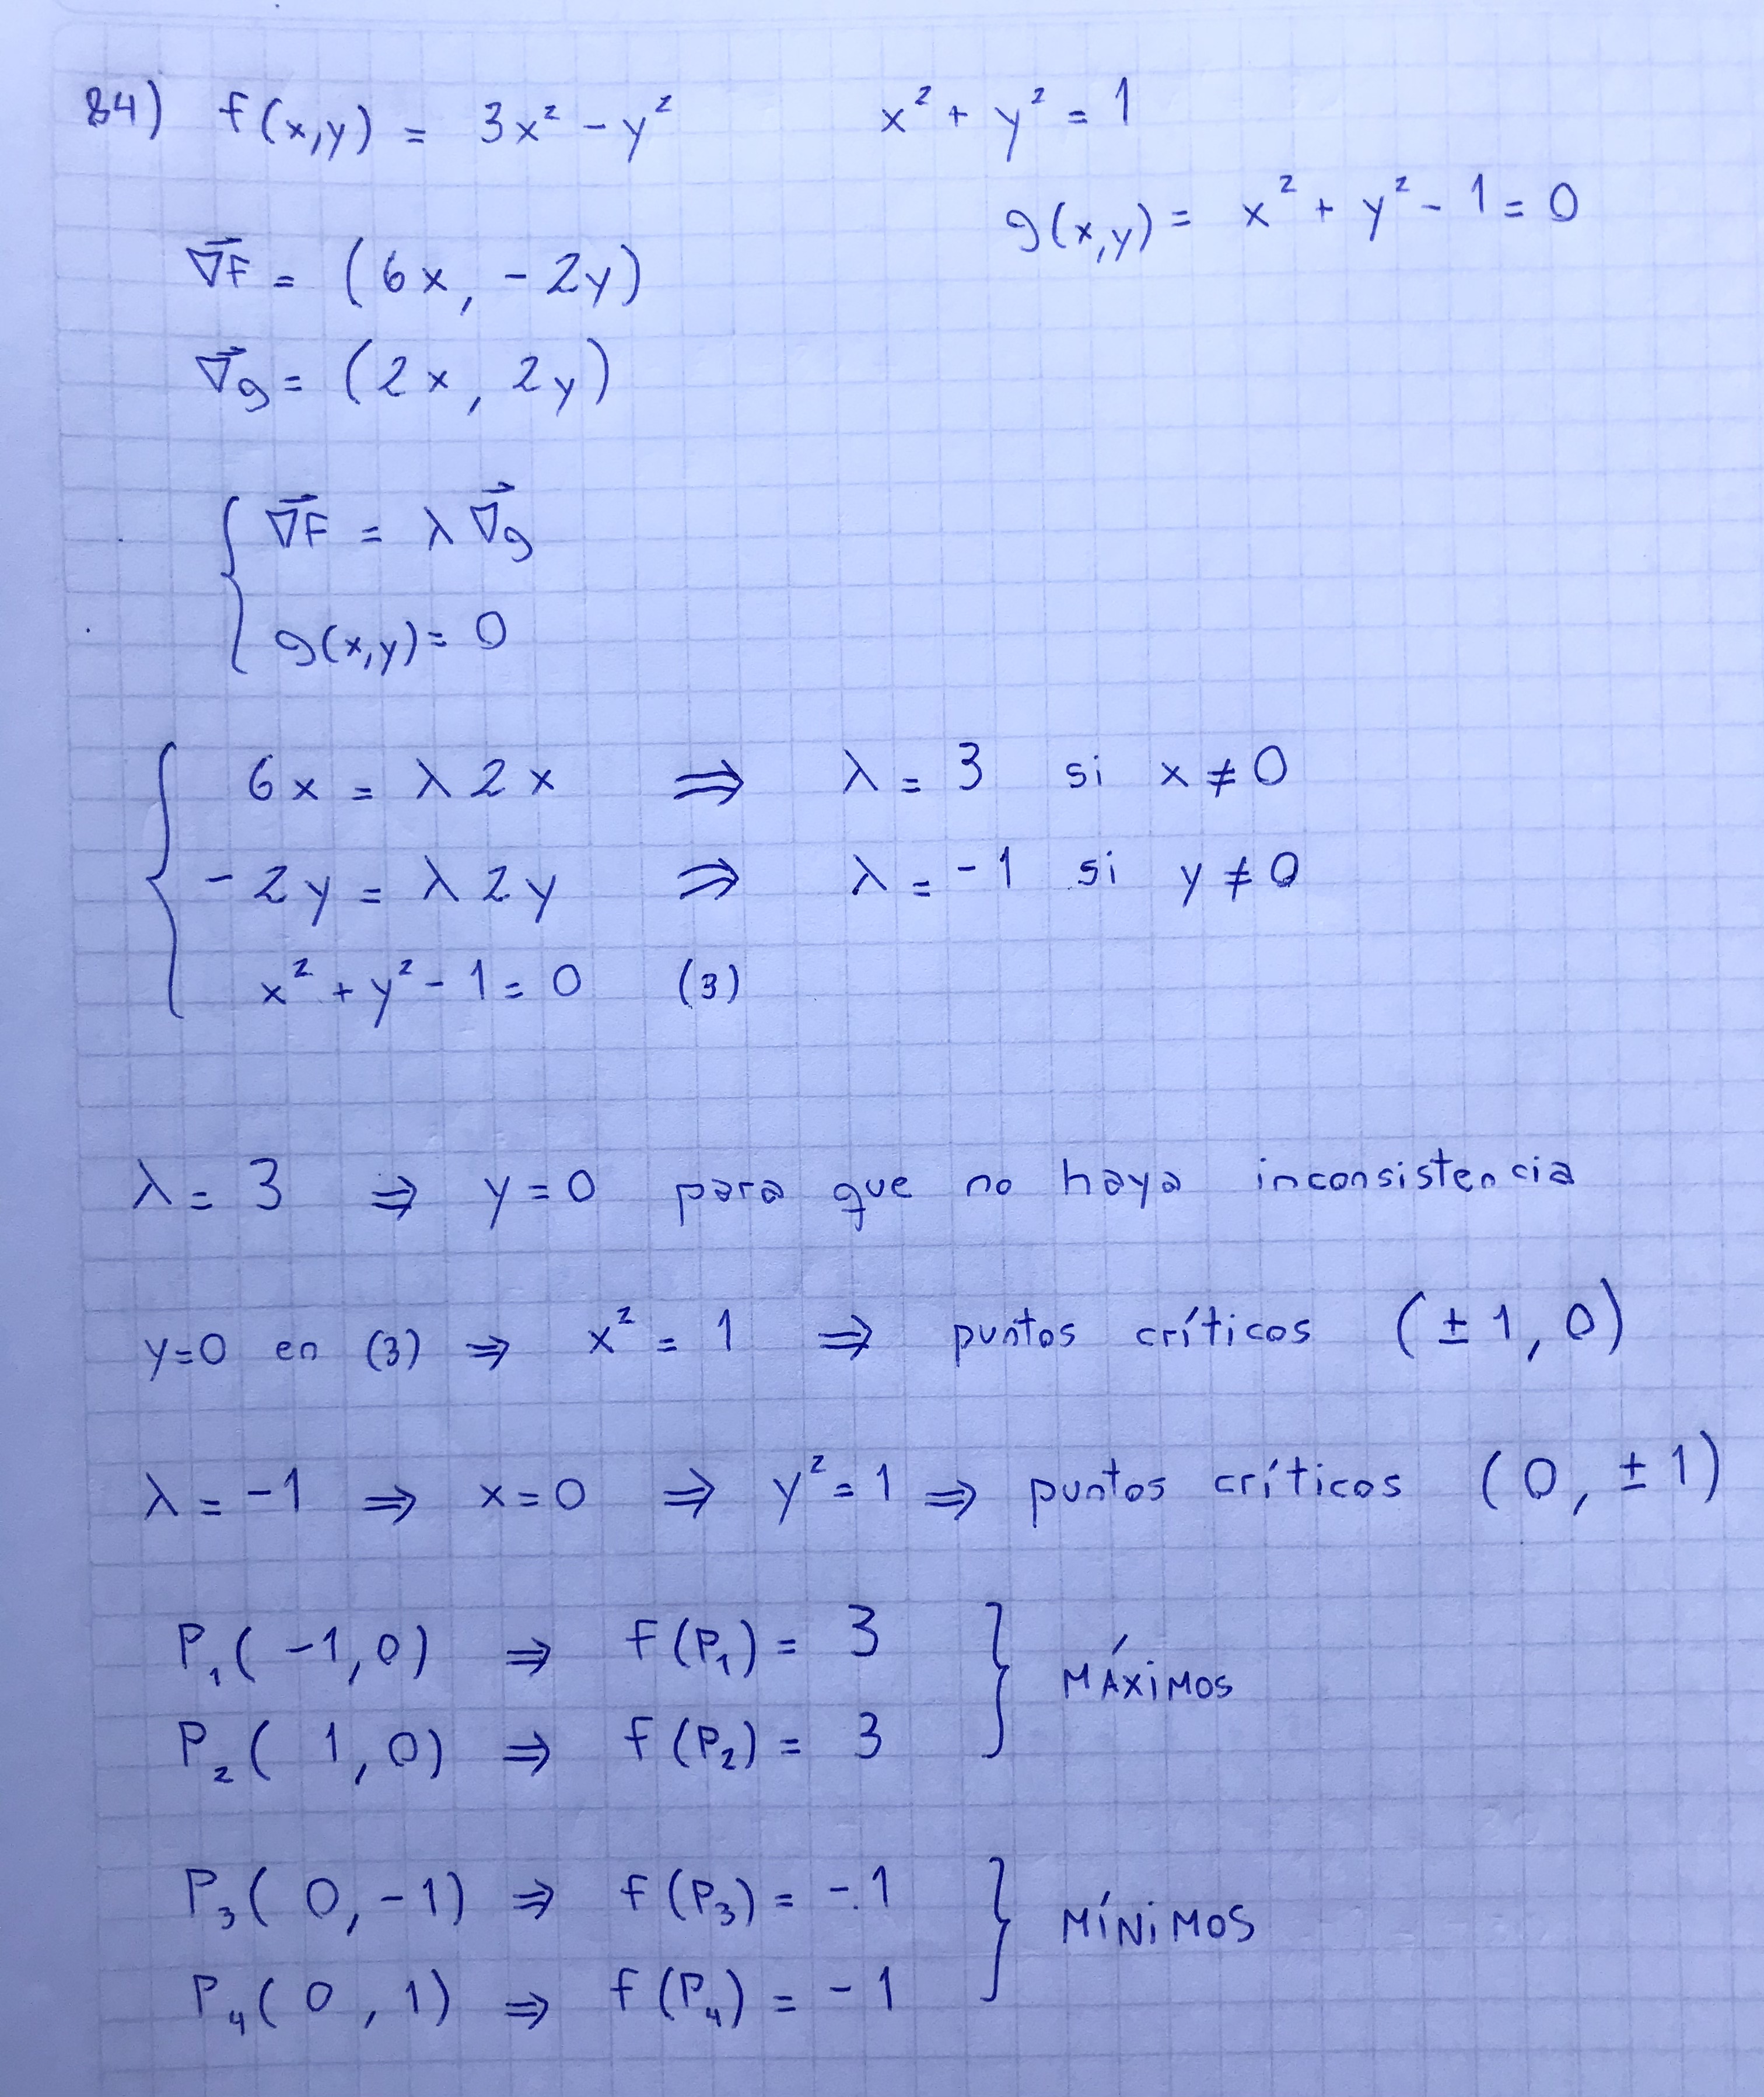 84) f(x,y) = 3x² - y²    x² + y² = 1
g(x,y) = x² + y² - 1 = 0
∇⃗F = (6x, -2y)
∇⃗g = (2x, 2y)
{ ∇⃗F = λ ∇⃗g
g(x,y) = 0
{ 6x = λ 2x ⇒ λ = 3 si x ≠ 0
-2y = λ 2y ⇒ λ = -1 si y ≠ 0
x² + y² - 1 = 0 (3)
λ = 3 ⇒ y = 0 para que no haya inconsistencia
y=0 en (3) ⇒ x² = 1 ⇒ puntos críticos (±1, 0)
λ = -1 ⇒ x = 0 ⇒ y² = 1 ⇒ puntos críticos (0, ±1)
P₁(-1,0) ⇒ f(P₁) = 3
} MÁXIMOS
P₂( 1,0) ⇒ f(P₂) = 3
P₃( 0,-1) ⇒ f(P₃) = -1
} MÍNIMOS
P₄( 0, 1) ⇒ f(P₄) = -1